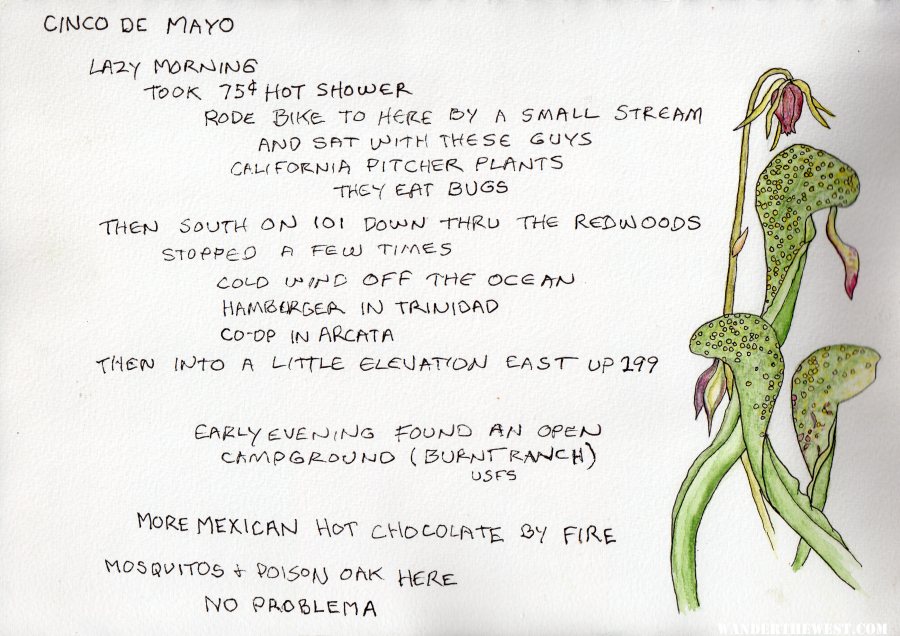 CINCO DE MAYO
LAZY MORNING
TOOK 75¢ HOT SHOWER
RODE BIKE TO HERE BY A SMALL STREAM
AND SAT WITH THESE GUYS
CALIFORNIA PITCHER PLANTS
THEY EAT BUGS
THEN SOUTH ON 101 DOWN THRU THE REDWOODS
STOPPED A FEW TIMES
COLD WIND OFF THE OCEAN
HAMBERGER IN TRINIDAD
CO-OP IN ARCATA
THEN INTO A LITTLE ELEVATION EAST UP 299
EARLY EVENING FOUND AN OPEN
CAMPGROUND (BURNT RANCH)
USFS
MORE MEXICAN HOT CHOCOLATE BY FIRE
MOSQUITOS + POISON OAK HERE
NO PROBLEMA
WANDERTHEWEST.COM